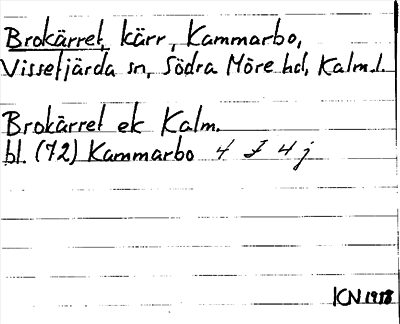 Brokärret, kärr, Kammarbo,
Vissefjärda sn, Södra Möre hd, Kalm.l.
Brokärret ek Kalm.
bl. (72) Kammarbo 4 J 4 j
KN 1978